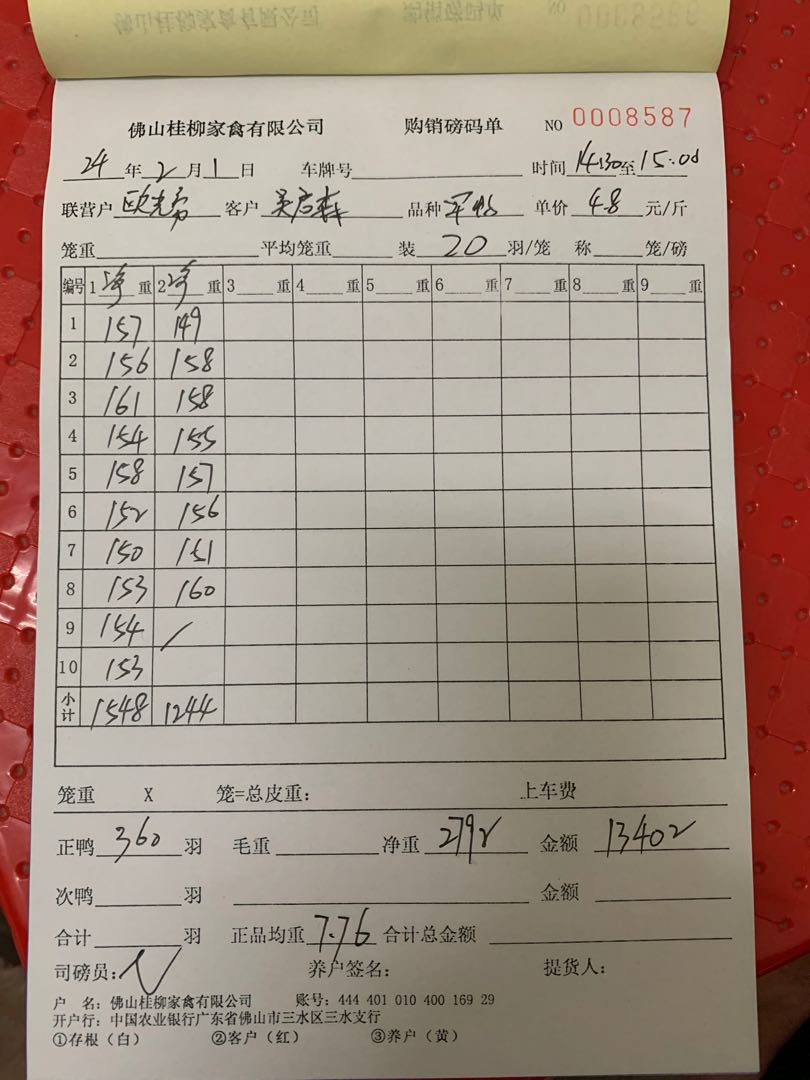 佛山桂柳家禽有限公司 购销磅码单 NO 0008587
24 年 2 月 1 日 车牌号 时间 14:30 至 15:00
联营户 欧 客户 吴 森 品种 单价 4.8 元/斤
笼重 平均笼重 装 20 羽/笼 称 笼/磅
编号 1 净 重 2 净 重 3 重 4 重 5 重 6 重 7 重 8 重 9 重
1 157 149
2 156 158
3 161 158
4 154 155
5 158 157
6 152 156
7 150 151
8 153 160
9 154 /
10 153
小计 1548 1244
笼重 X 笼=总皮重： 上车费
正鸭 360 羽 毛重 净重 2792 金额 13402
次鸭 羽 金额
合计 羽 正品均重 7.76 合计总金额
司磅员： 养户签名： 提货人：
户 名：佛山桂柳家禽有限公司 账号：444 401 010 400 169 29
开户行：中国农业银行广东省佛山市三水区三水支行
①存根（白） ②客户（红） ③养户（黄）